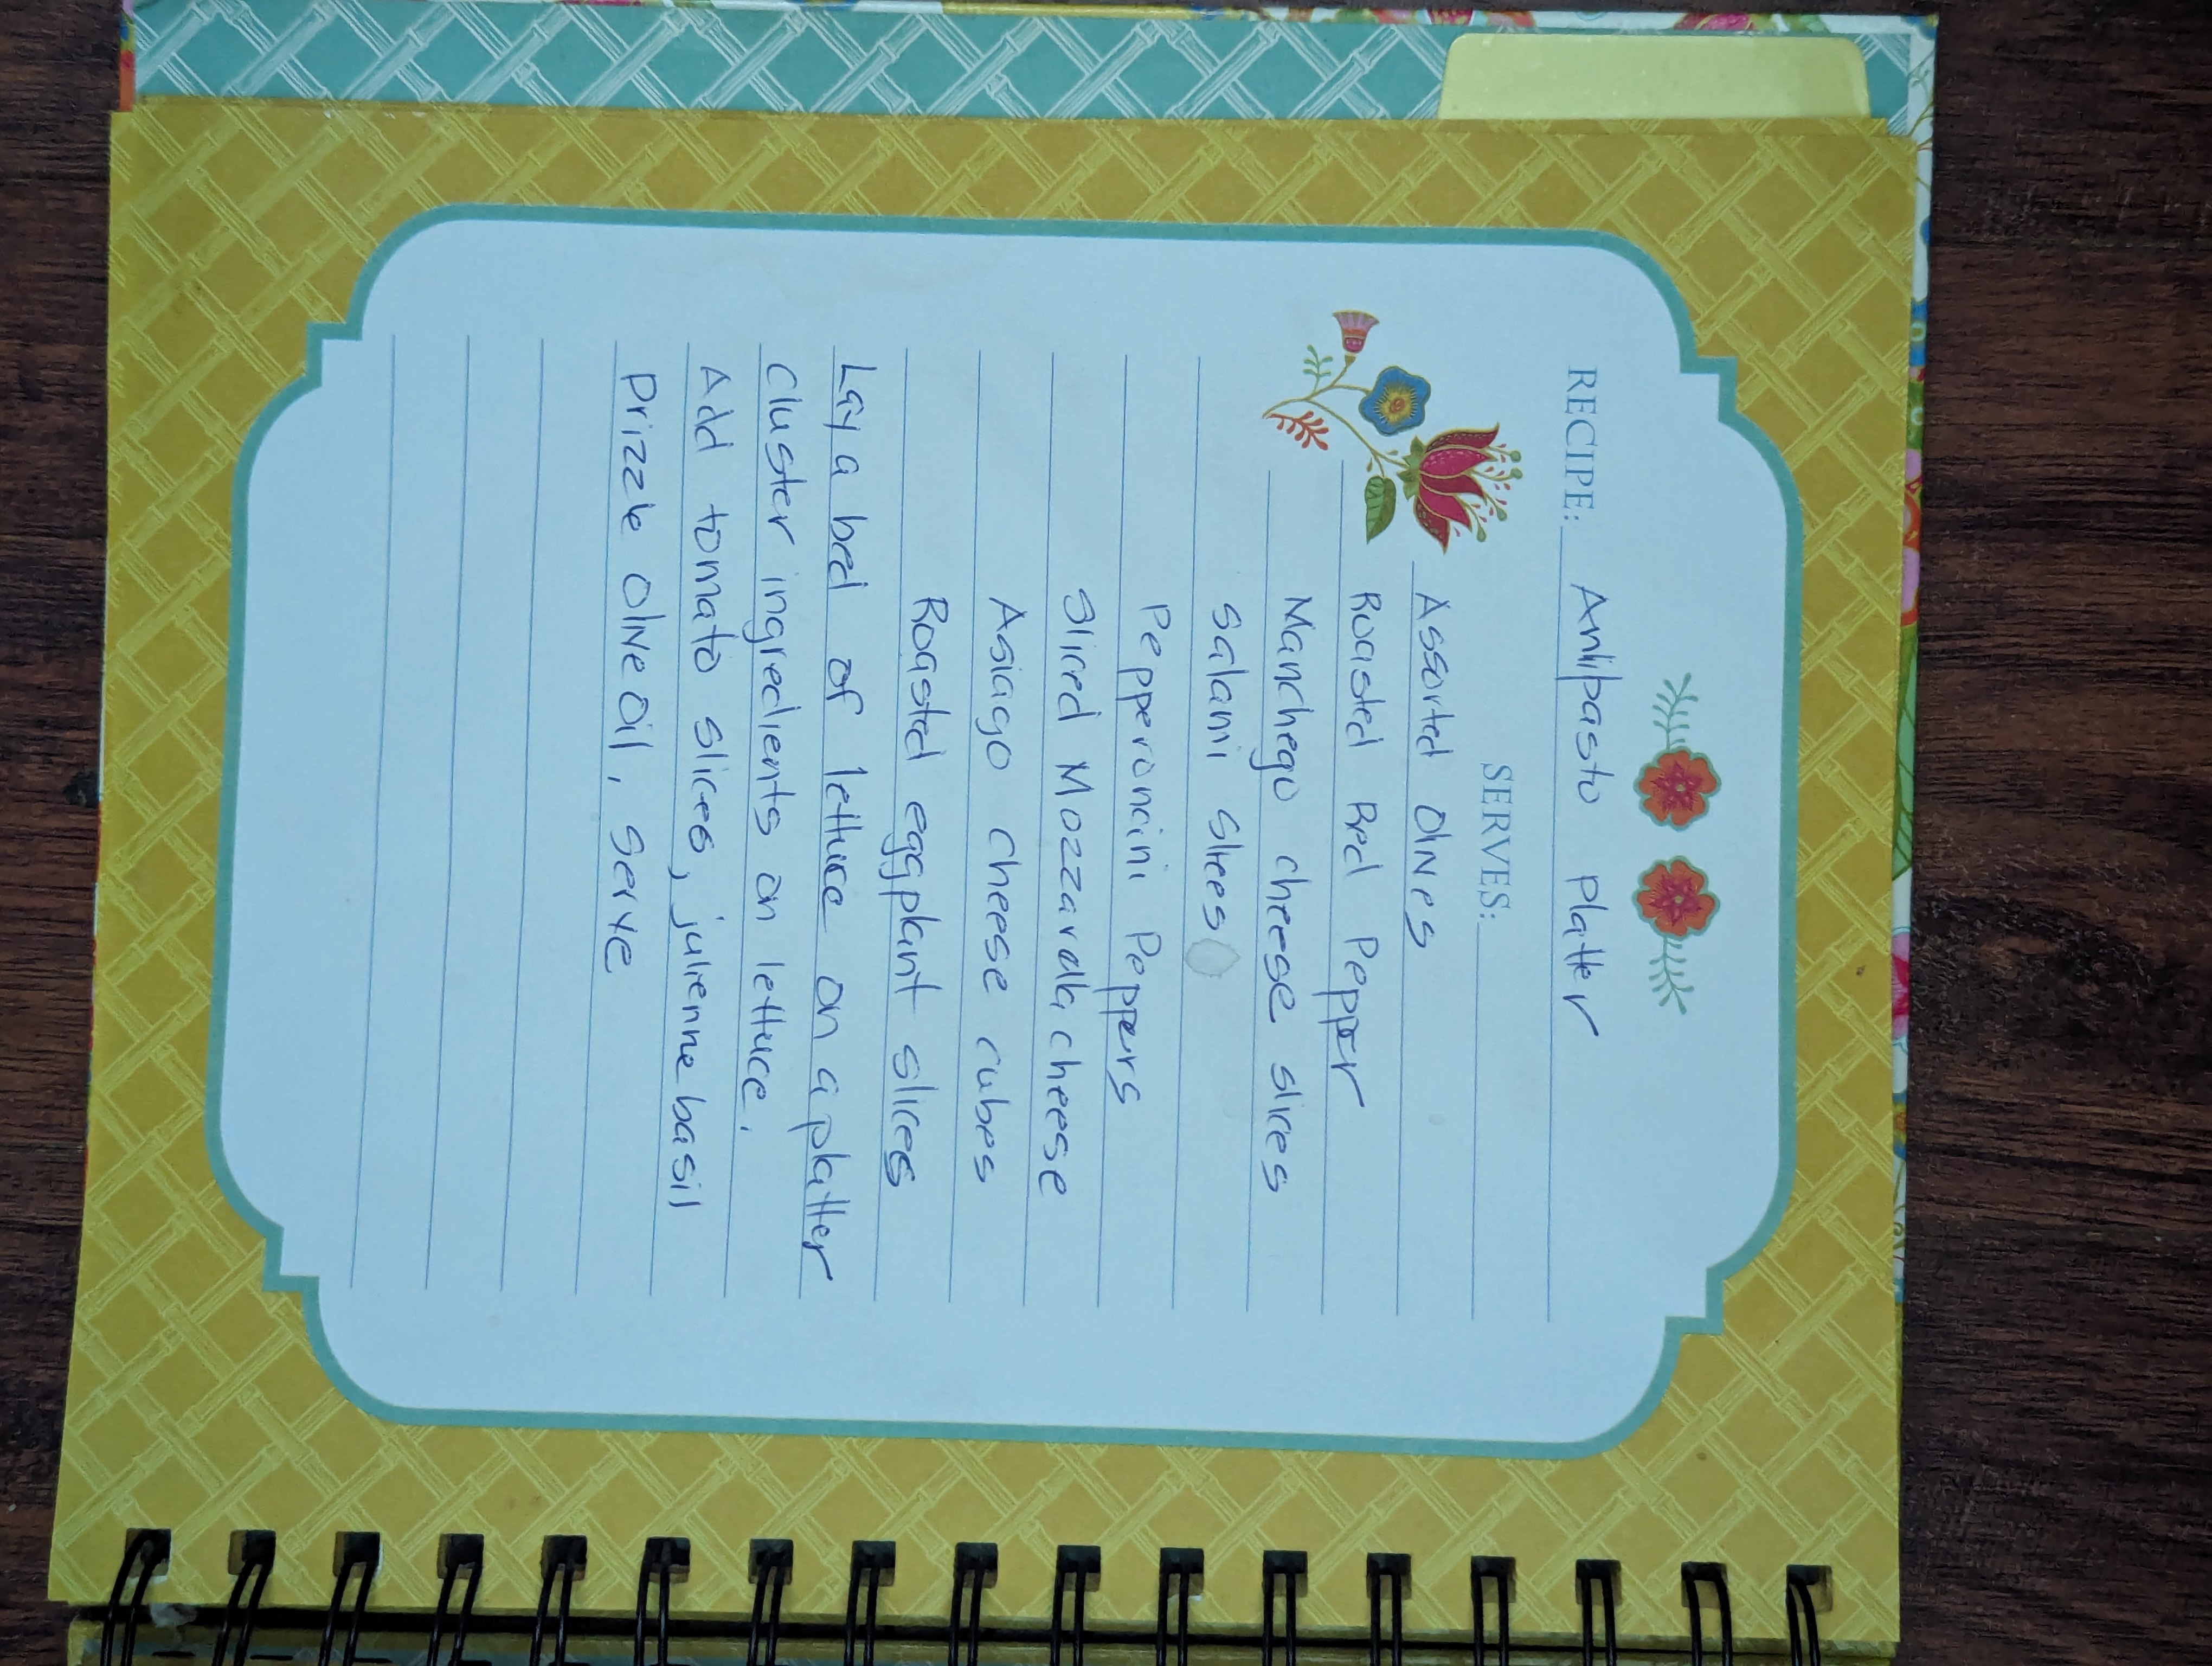 RECIPE: Antipasto Platter
SERVES:
Assorted Olives
Roasted Red Pepper
Manchego cheese slices
Salami Slices
Pepperoncini Peppers
Sliced Mozzarella cheese
Asiago Cheese cubes
Roasted eggplant slices
Lay a bed of lettuce on a platter
Cluster ingredients on lettuce.
Add tomato slices, julienne basil
Drizzle Olive Oil, Serve